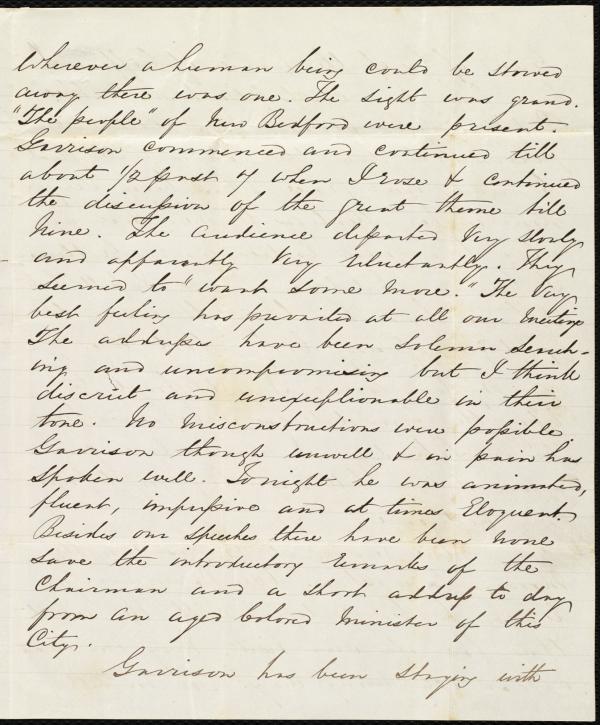 Wherever a human being could be stowed
away there was one. The sight was grand.
"The people" of New Bedford were present.
Garrison commenced and continued till
about 1/2 past 7 when I rose & continued
the discussion of the great theme till
Nine. The audience departed very slowly
and apparently very reluctantly. They
seemed to "want some more." The very
best feeling has prevailed at all our meetings
The addresses have been solemn search-
ing and uncompromising but I think
discreet and unexceptionable in their
tone. No misconstructions were possible
Garrison though unwell & in pain has
spoken well. Tonight he was animated,
fluent, impressive and at times Eloquent.
Besides our speeches there have been none
save the introductory remarks of the
Chairman and a short address to day
from an aged Colored Minister of this
City.
Garrison has been staying with